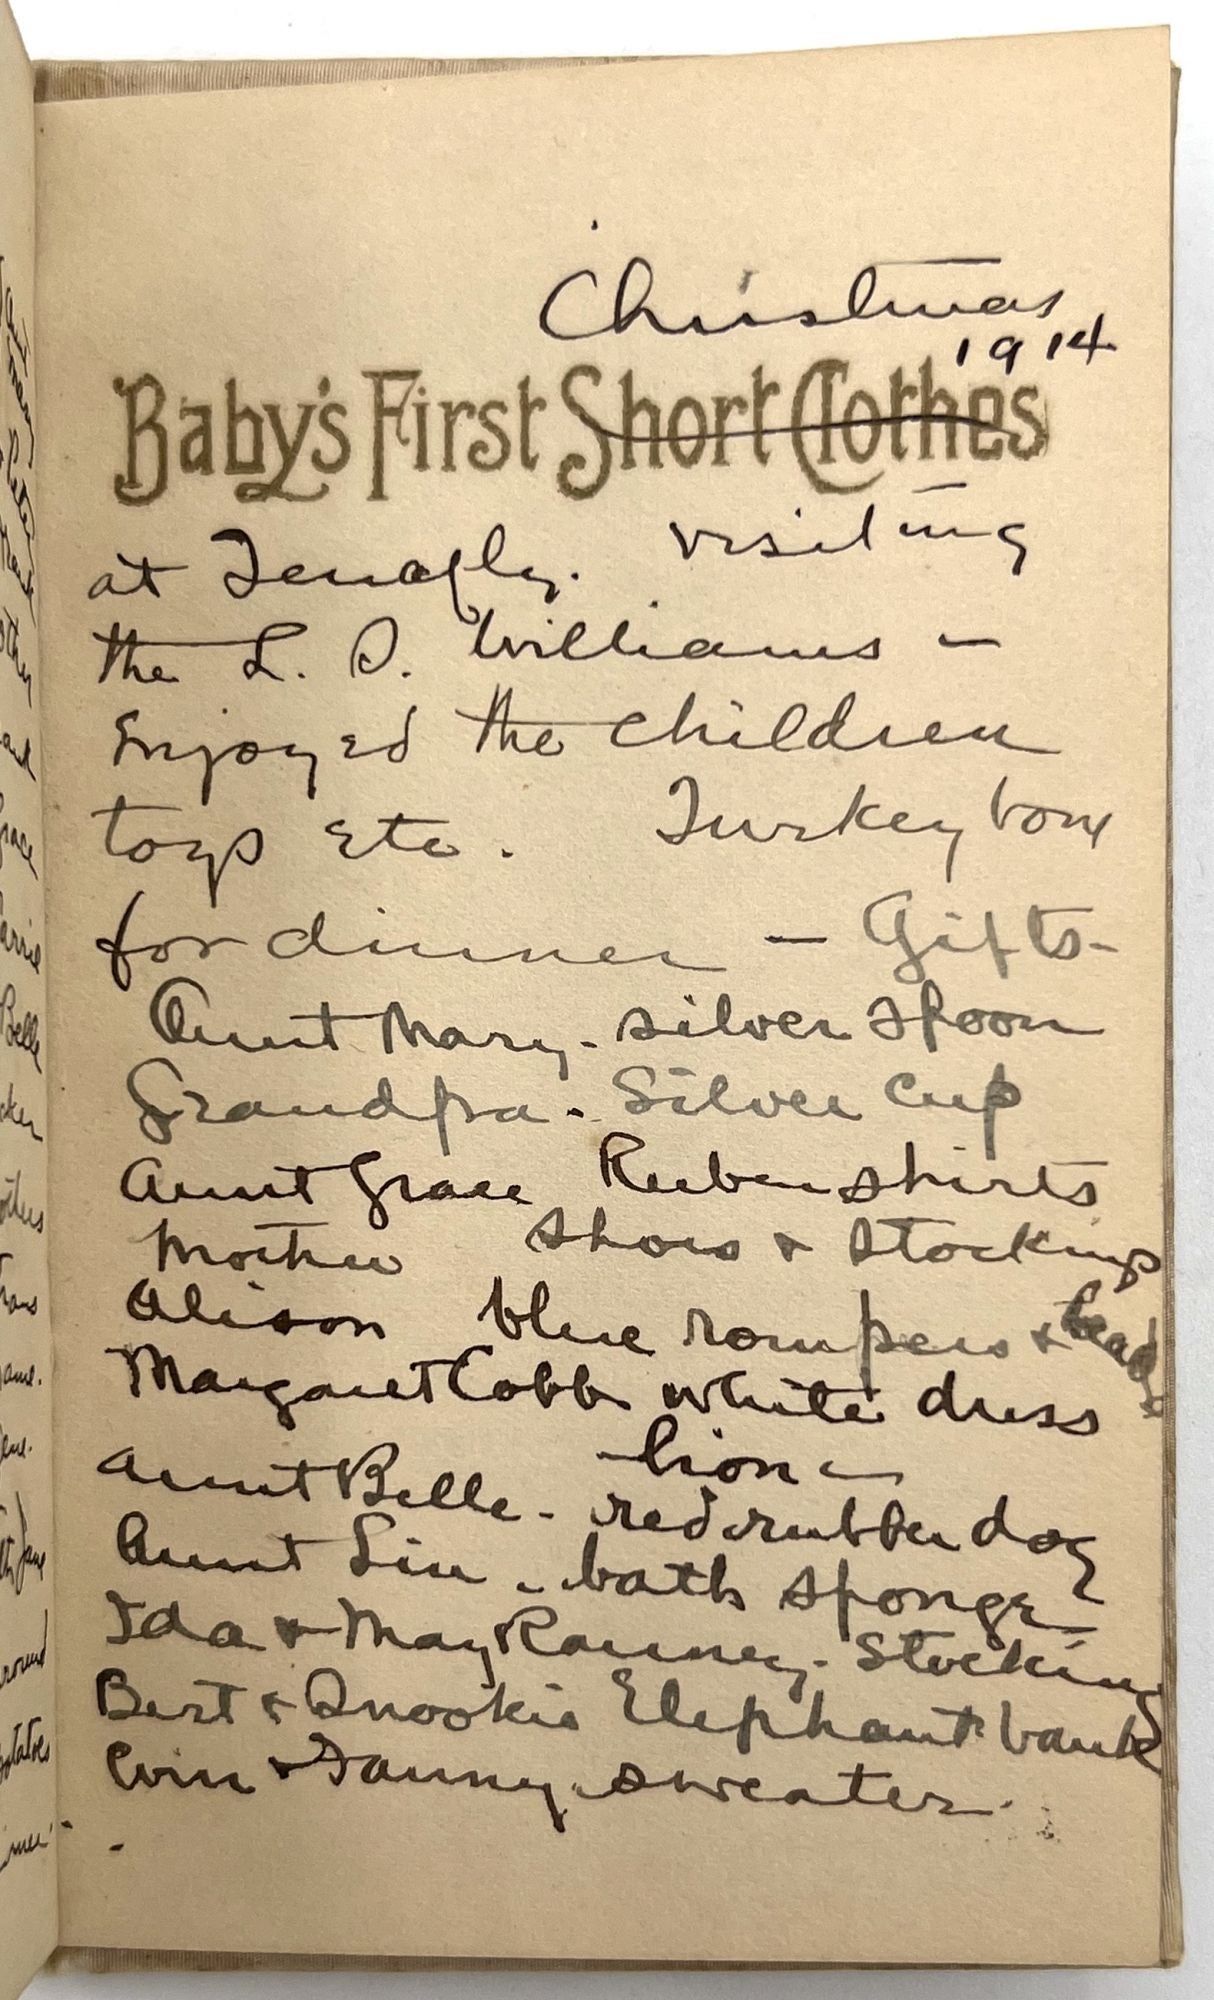 Christmas
1914
Baby's First Short Clothes
at Tenafly. visiting
the L. D. Williams -
Enjoyed the children
toys etc. Turkey bone
for dinner - Gifts -
Aunt Mary - silver spoon
Grandpa - Silver cup
Aunt Grace Ruben shirts
Mother shoes & stockings
Alison blue rompers & beads
Margaret Cobb white dress
lion -
Aunt Belle - red rubber dog
Aunt Lin - bath sponge
Ida & May Ranney - Stocking
Bert & Snookie Elephant bank
& Fanny - sweater.